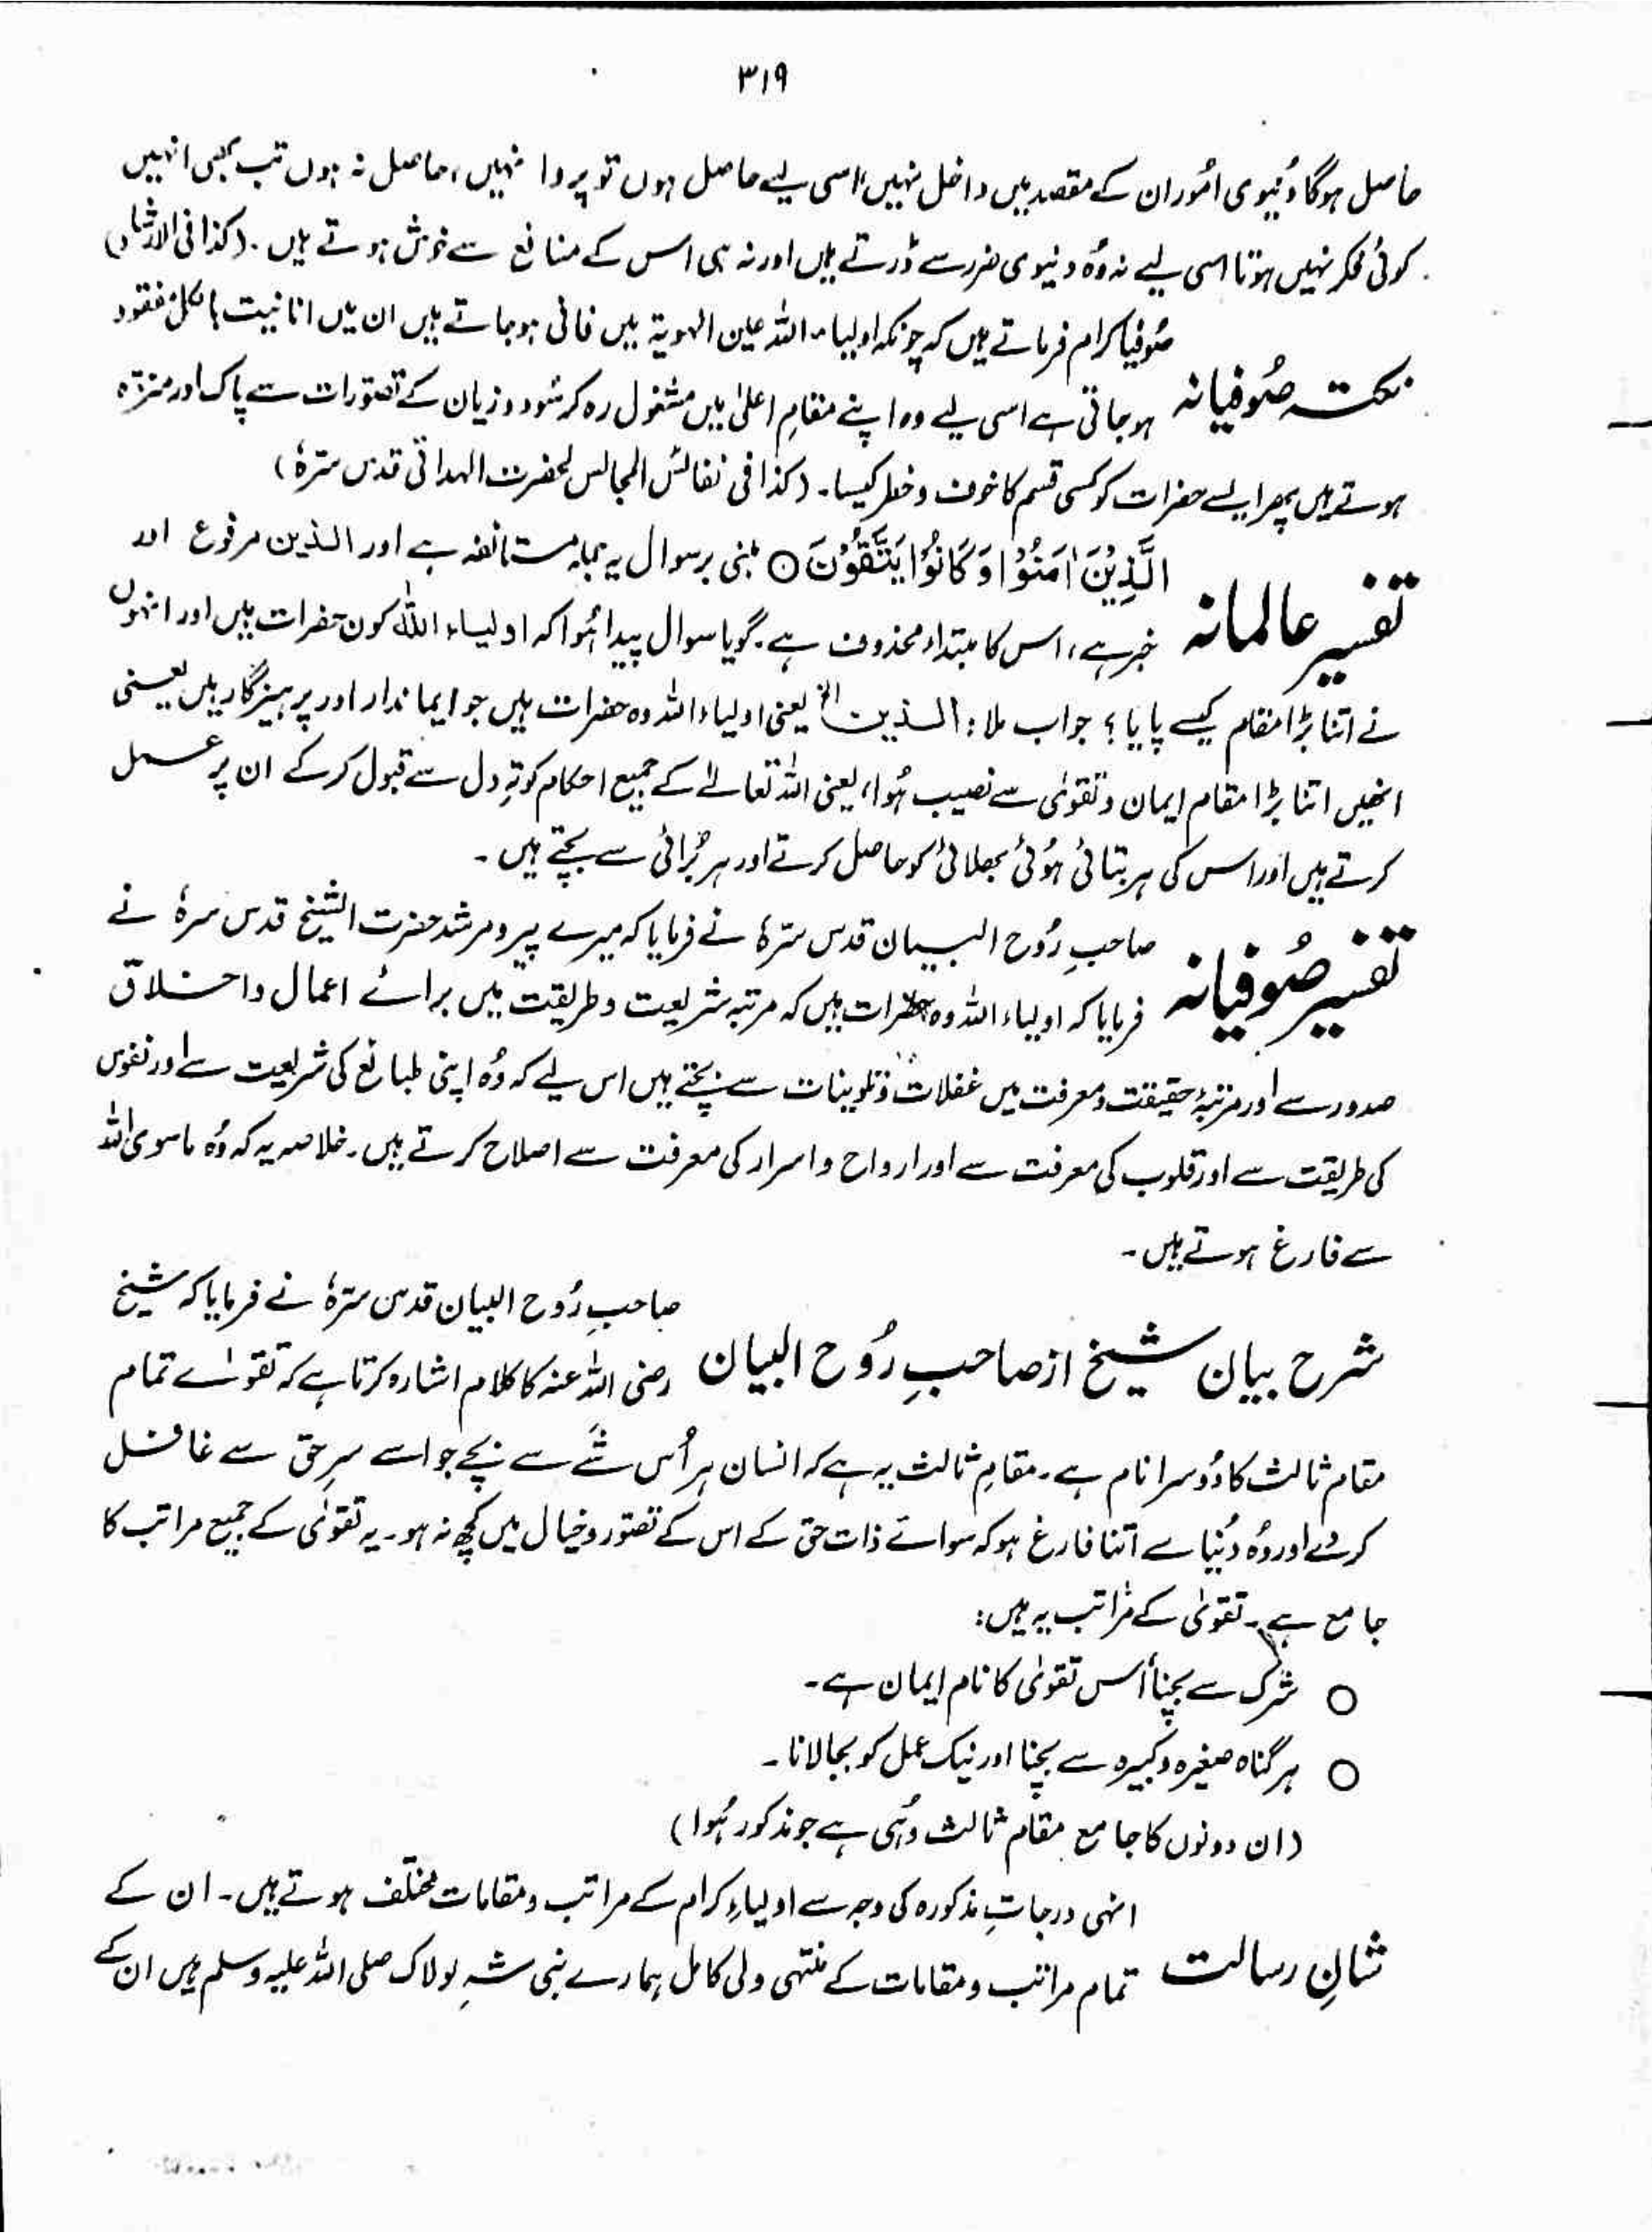 ٣١٩
حاصل ہوگا دُنیوی امُور ان کے مقصد میں داخل نہیں، اسی لیے حاصل ہوں تو پروا نہیں، حاصل نہ ہوں تب بھی انہیں
کوئی فکر نہیں ہوتا اسی لیے نہ وُہ دنیوی ضرر سے ڈرتے ہیں اور نہ ہی اس کے منافع سے خوش ہوتے ہیں۔ (کذا فی الارشاد)
صُوفیا کرام فرماتے ہیں کہ چونکہ اولیاء اللہ عین الہویۃ میں فانی ہو جاتے ہیں ان میں انانیت بالکل مفقود
نکتہ صُوفیانہ ہو جاتی ہے اسی لیے وہ اپنے مقامِ اعلیٰ میں مشغول رہ کر سُود و زیان کے تصوّرات سے پاک اور منزّہ
ہوتے ہیں پھر ایسے حضرات کو کسی قسم کا خوف و خطر کیسا۔ (کذا فی نفائس المجالس لحضرت الہدائی قدس سرّہٗ)
الَّذِيْنَ اٰمَنُوْا وَ كَانُوْا يَتَّقُوْنَ ○ مبنی بر سوال یہ جملہ مستانفہ ہے اور الذین مرفوع اور
تفسیر عالمانہ خبر ہے، اس کا مبتداء محذوف ہے۔ گویا سوال پیدا ہُوا کہ اولیاء اللہ کون حضرات ہیں اور انہوں
نے اتنا بڑا مقام کیسے پایا؟ جواب ملا: الذین الخ یعنی اولیاء اللہ وہ حضرات ہیں جو ایماندار اور پرہیزگار ہیں یعنی
انھیں اتنا بڑا مقام ایمان و تقوٰی سے نصیب ہُوا، یعنی اللہ تعالےٰ کے جمیع احکام کو تہِ دل سے قبول کر کے ان پر عمل
کرتے ہیں اور اس کی ہر بتائی ہُوئی بھلائی کو حاصل کرتے اور ہر بُرائی سے بچتے ہیں۔
صاحبِ رُوح البیان قدس سرّہٗ نے فرمایا کہ میرے پیر و مرشد حضرت الشیخ قدس سرہٗ نے
تفسیر صُوفیانہ فرمایا کہ اولیاء اللہ وہ حضرات ہیں کہ مرتبہ شریعت و طریقت میں برائے اعمال و اخلاق
صدور سے اور مرتبۂ حقیقت و معرفت میں غفلات و تلوینات سے بچتے ہیں اس لیے کہ وُہ اپنی طبائع کی شریعت سے اور نفوس
کی طریقت سے اور قلوب کی معرفت سے اور ارواح و اسرار کی معرفت سے اصلاح کرتے ہیں۔ خلاصہ یہ کہ وُہ ماسوی اللہ
سے فارغ ہوتے ہیں۔
صاحبِ رُوح البیان قدس سرّہٗ نے فرمایا کہ شیخ
شرح بیان شیخ از صاحبِ رُوح البیان رضی اللہ عنہ کا کلام اشارہ کرتا ہے کہ تقوےٰ تمام
مقام ثالث کا دُوسرا نام ہے۔ مقامِ ثالث یہ ہے کہ انسان ہر اُس شَے سے بچے جو اسے سرِ حق سے غافل
کر دے اور وُہ دُنیا سے اتنا فارغ ہو کہ سوائے ذات حق کے اس کے تصوّر و خیال میں کچھ نہ ہو۔ یہ تقوٰی کے جمیع مراتب کا
جامع ہے۔ تقوٰی کے مراتب یہ ہیں:
○ شرک سے بچنا اُس تقوٰی کا نام ایمان ہے۔
○ ہر گناہ صغیرہ و کبیرہ سے بچنا اور نیک عمل کو بجا لانا۔
(ان دونوں کا جامع مقام ثالث وُہی ہے جو مذکور ہُوا)
انہی درجاتِ مذکورہ کی وجہ سے اولیاءِ کرام کے مراتب و مقامات مختلف ہوتے ہیں۔ ان کے
شانِ رسالت تمام مراتب و مقامات کے منتہی ولی کامل ہمارے نبی شہِ لولاک صلی اللہ علیہ وسلم ہیں ان کے